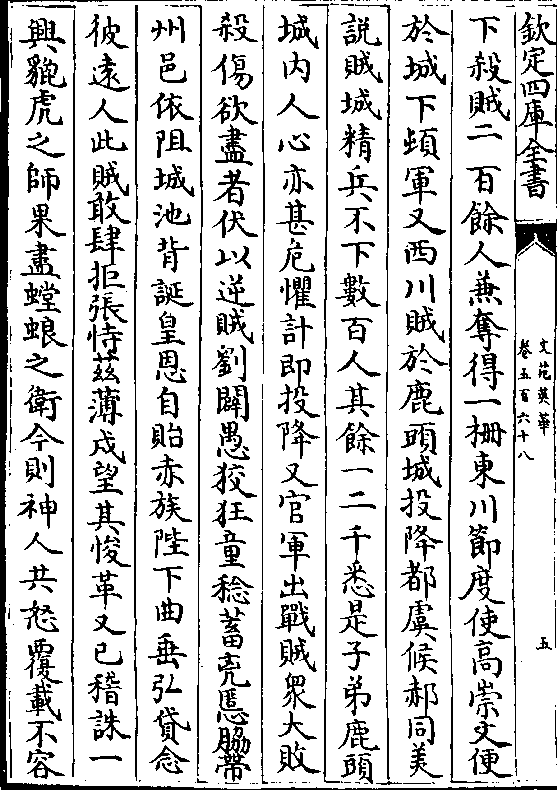 欽定四庫全書
文苑英華
卷五百六十八
五
下殺賊二百餘人兼奪得一柵東川節度使高崇文便
於城下頓軍又西川賊於鹿頭城投降都虞候郝同美
説賊城精兵不下數百人其餘一二千悉是子弟鹿頭
城内人心亦甚危懼計即投降又官軍出戰賊衆大敗
殺傷欲盡者伏以逆賊劉闢愚狡狂童稔蓄兇慝脇帶
州邑依阻城池背誕皇恩自貽赤族陛下曲垂弘貸念
彼遠人此賊敢肆拒張恃兹薄戍望其悛革又已稽誅一
興貔虎之師果盡螳蜋之衛今則神人共怒覆載不容